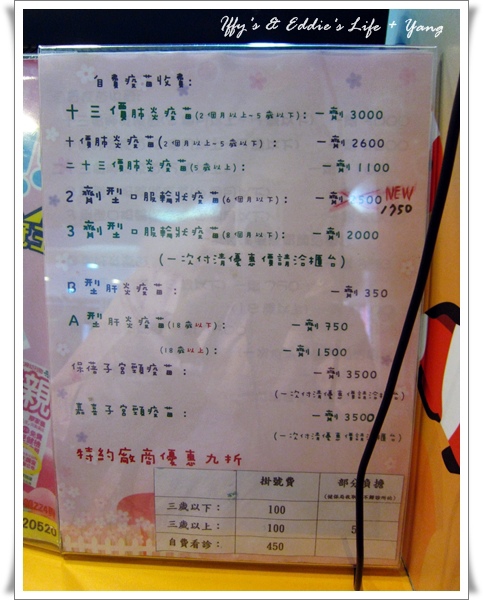 Iffy's & Eddie's Life + Yang
自費疫苗收費:
十三價肺炎疫苗(2個月以上~5歲以下): 一劑 3000
十價肺炎疫苗(2個月以上~5歲以下): 一劑 2600
二十三價肺炎疫苗(5歲以上): 一劑 1100
2劑型口服輪狀疫苗(6個月以下): 一劑 2500 NEW
1750
3劑型口服輪狀疫苗(8個月以下): 一劑 2000
(一次付清優惠價請洽櫃台)
B型肝炎疫苗: 一劑 350
A型肝炎疫苗(18歲以下): 一劑 750
(18歲以上): 一劑 1500
保蓓子宮頸疫苗: 一劑 3500
(一次付清優惠價請洽櫃台)
嘉喜子宮頸疫苗: 一劑 3500
(一次付清優惠價請洽櫃台)
特約廠商優惠九折
掛號費 部分負擔
三歲以下: 100
三歲以上: 100 5
自費看診: 450
親
20520